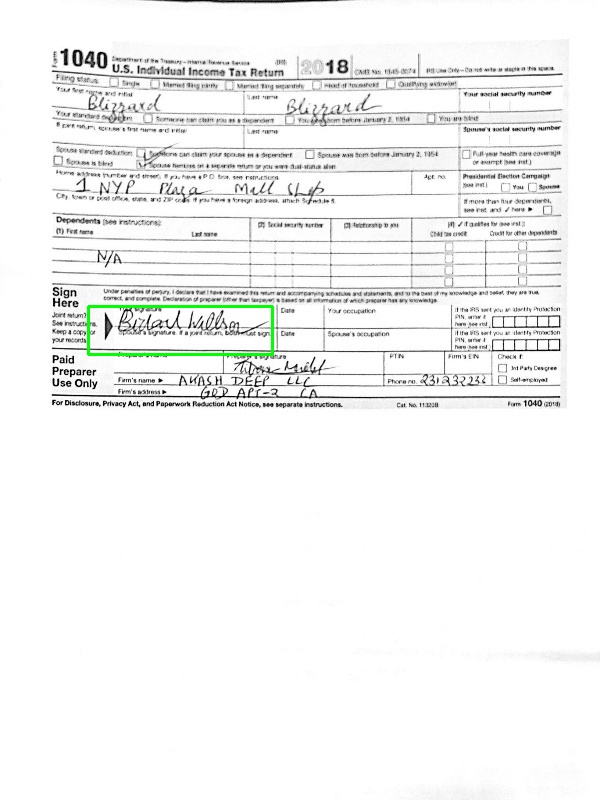 Form 1040 Department of the Treasury—Internal Revenue Service (99)
U.S. Individual Income Tax Return 2018 OMB No. 1545-0074 IRS Use Only—Do not write or staple in this space.
Filing status: Single Married filing jointly Married filing separately Head of household Qualifying widow(er)
Your first name and initial Last name Your social security number
Blizzard Blizzard
Your standard deduction Someone can claim you as a dependent You were born before January 2, 1954 You are blind
If joint return, spouse's first name and initial Last name Spouse's social security number
Spouse standard deduction: Someone can claim your spouse as a dependent Spouse was born before January 2, 1954 Full-year health care coverage
Spouse is blind Spouse itemizes on a separate return or you were dual-status alien or exempt (see inst.)
Home address (number and street). If you have a P.O. box, see instructions. Apt. no. Presidential Election Campaign
1 NYP Plaza Mall (see inst.) You Spouse
City, town or post office, state, and ZIP code. If you have a foreign address, attach Schedule 6. If more than four dependents,
see inst. and ✓ here ▶
Dependents (see instructions): (2) Social security number (3) Relationship to you (4) ✓ if qualifies for (see inst.):
(1) First name Last name Child tax credit Credit for other dependents
N/A
Sign Under penalties of perjury, I declare that I have examined this return and accompanying schedules and statements, and to the best of my knowledge and belief, they are true,
Here correct, and complete. Declaration of preparer (other than taxpayer) is based on all information of which preparer has any knowledge.
Joint return? signature Date Your occupation If the IRS sent you an Identity Protection
See instructions. PIN, enter it
here (see inst.)
Keep a copy for Spouse's signature. If a joint return, both must sign. Date Spouse's occupation If the IRS sent you an Identity Protection
your records. PIN, enter it
here (see inst.)
Paid Preparer's signature PTIN Firm's EIN Check if:
Preparer 3rd Party Designee
Use Only Firm's name ▶ AKASH DEEP LLC Phone no. Self-employed
Firm's address ▶ GOD APT-2 CA
For Disclosure, Privacy Act, and Paperwork Reduction Act Notice, see separate instructions. Cat. No. 11320B Form 1040 (2018)